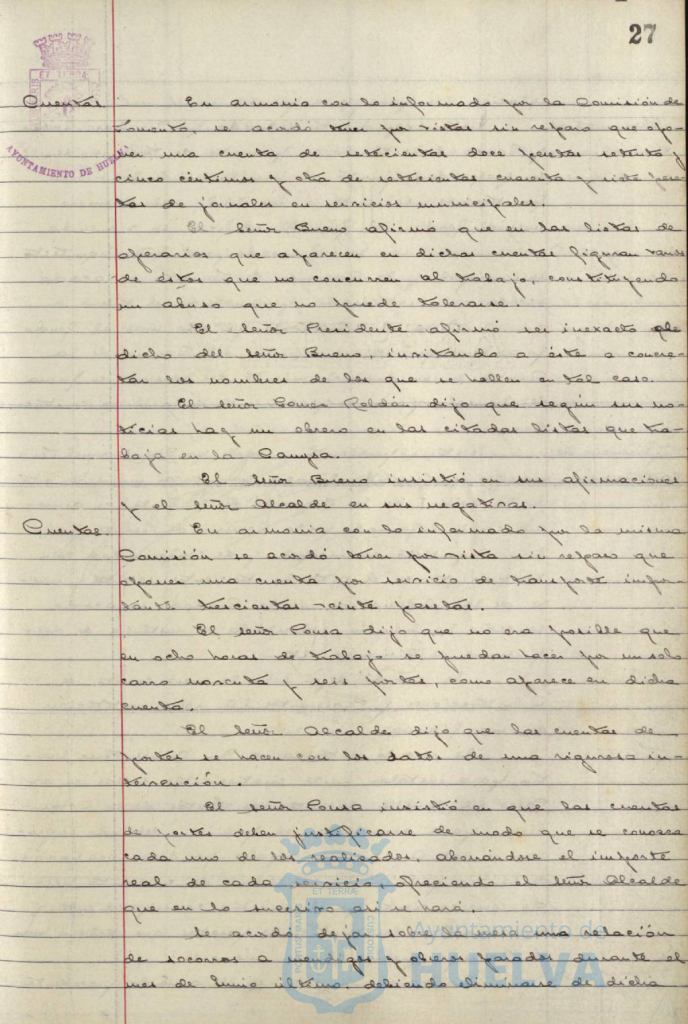 27
Cuentas En armonia con lo informado por la Comisión de
Fomento, se acordó tener por vistas sin reparo que opo-
ner una cuenta de setecientas doce pesetas setenta y
cinco céntimos y otra de setecientas cuarenta y siete pese-
tas de jornales en servicios municipales.
El Señor Bueno afirmó que en las listas de
operarios que aparecen en dichas cuentas figuran varios
de éstos que no concurren al trabajo, constituyendo
un abuso que no puede tolerarse.
El Señor Presidente afirmó ser inexacto
dicho del Señor Bueno, invitando a éste a concre-
tar los nombres de los que se hallen en tal caso.
El Señor Gomez Roldán dijo que según sus no-
ticias hay un obrero en las citadas listas que tra-
baja en la Campsa.
El Señor Bueno insistió en sus afirmaciones
y el Señor Alcalde en sus negativas.
Cuentas. En armonia con lo informado por la misma
Comisión se acordó tener por vista sin reparo que
oponer una cuenta por servicio de transporte impor-
tante trescientas veinte pesetas.
El Señor Ponsa dijo que no era posible que
en ocho horas de trabajo se puedan hacer por un solo
carro noventa y seis portes, como aparece en dicha
cuenta.
El Señor Alcalde dijo que las cuentas de
portes se hacen con los datos de una rigurosa in-
tervención.
El Señor Ponsa insistió en que las cuentas
de portes deben justificarse de modo que se conozca
cada uno de los realizados, abonándose el importe
real de cada servicio, ofreciendo el Señor Alcalde
que en lo sucesivo asi se hará.
Se acordó dejar sobre la mesa una relación
de socorros a mendigos y obreros parados durante el
mes de Junio último, debiendo eliminarse de dicha
AYUNTAMIENTO DE HUELVA
ET TERRÆ
Ayuntamiento de
HUELVA